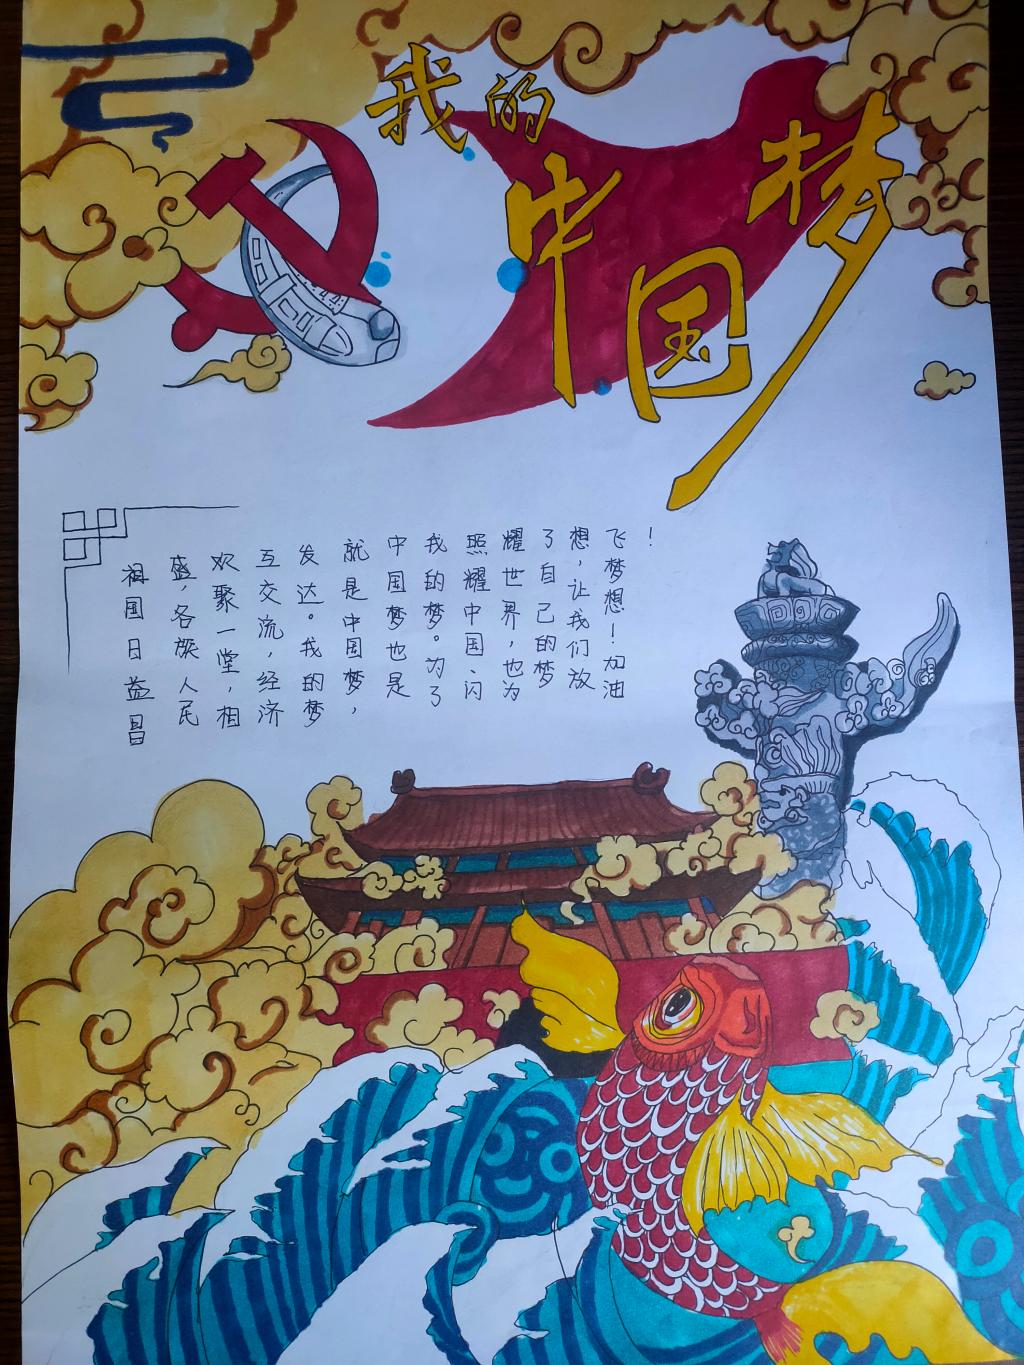 我的
中国梦
祖国日益昌
盛，各族人民
欢聚一堂，相
互交流，经济
发达。我的梦
就是中国梦，
中国梦也是
我的梦。为了
照耀中国、闪
耀世界，也为
了自己的梦
想，让我们放
飞梦想！加油
！